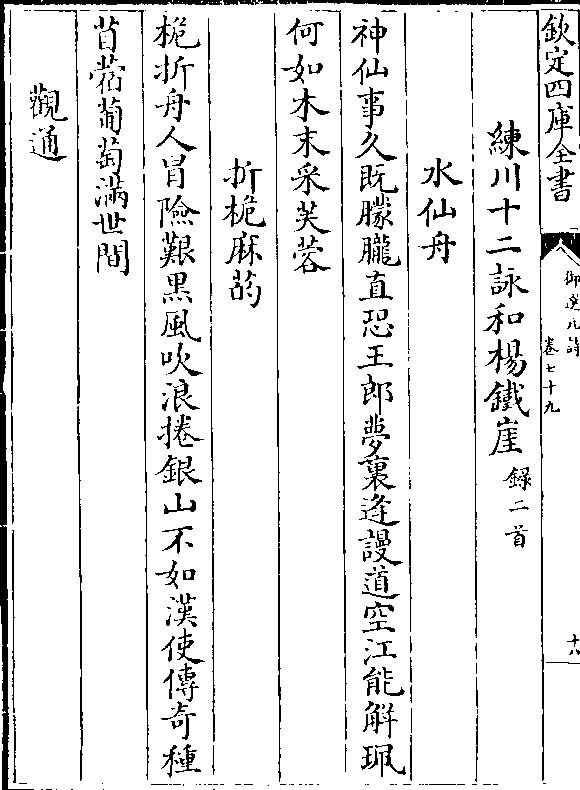 欽定四庫全書
御選元詩
卷七十九
十八
練川十二詠和楊鐵崖錄二首
水仙舟
神仙事久既朦朧直恐王郎夢裏逢謾道空江能解珮
何如木末采芙蓉
折桅麻菂
桅折舟人冒險艱黑風吹浪捲銀山不如漢使傳奇種
苜蓿葡萄滿世間
觀通